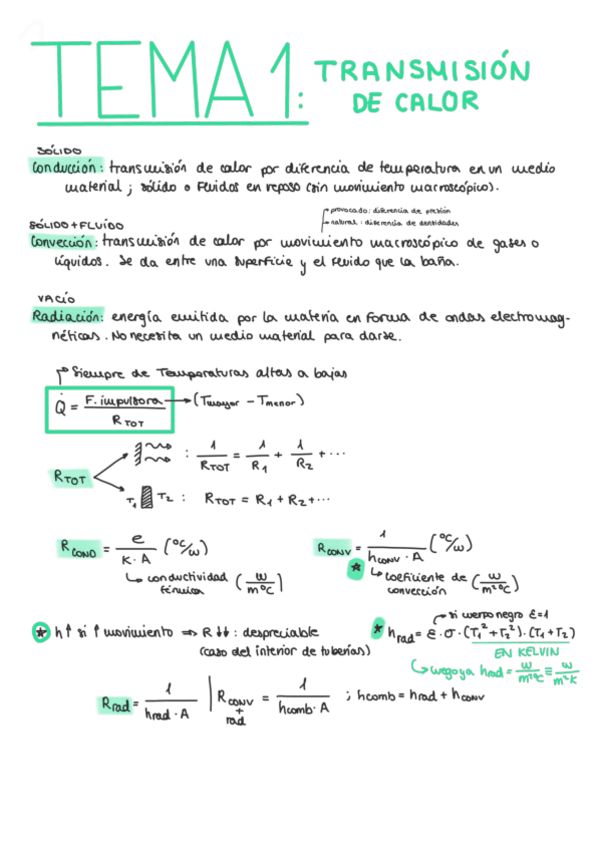 TEMA 1: TRANSMISIÓN
DE CALOR
SÓLIDO
Conducción: transmisión de calor por diferencia de temperatura en un medio
material; sólido o fluidos en reposo (sin movimiento macroscópico).
provocado: diferencia de presión
natural: diferencia de densidades
SÓLIDO + FLUÍDO
Convección: transmisión de calor por movimiento macroscópico de gases o
líquidos. Se da entre una superficie y el fluido que la baña.
VACÍO
Radiación: energía emitida por la materia en forma de ondas electromag-
néticas. No necesita un medio material para darse.
Siempre de Temperaturas altas a bajas
Q̇ = F. impulsora / R_TOT → (Tmayor - Tmenor)
R_TOT
: 1/R_TOT = 1/R₁ + 1/R₂ + ...
T₁ T₂ : R_TOT = R₁ + R₂ + ...
R_COND = e / K·A (°C/W)
↳ conductividad térmica (W/m°C)
R_CONV = 1 / h_conv·A (°C/W)
↳ coeficiente de convección (W/m²°C)
★ h↑ si ↑ movimiento ⇒ R↓↓: despreciable
(caso del interior de tuberías)
si cuerpo negro ε=1
★ h_rad = ε·σ·(T₁²+T₂²)·(T₁+T₂)
EN KELVIN
↳ luego ya h_rad = W/m²°C ≡ W/m²K
R_rad = 1 / h_rad·A | R_conv + rad = 1 / h_comb·A ; h_comb = h_rad + h_conv